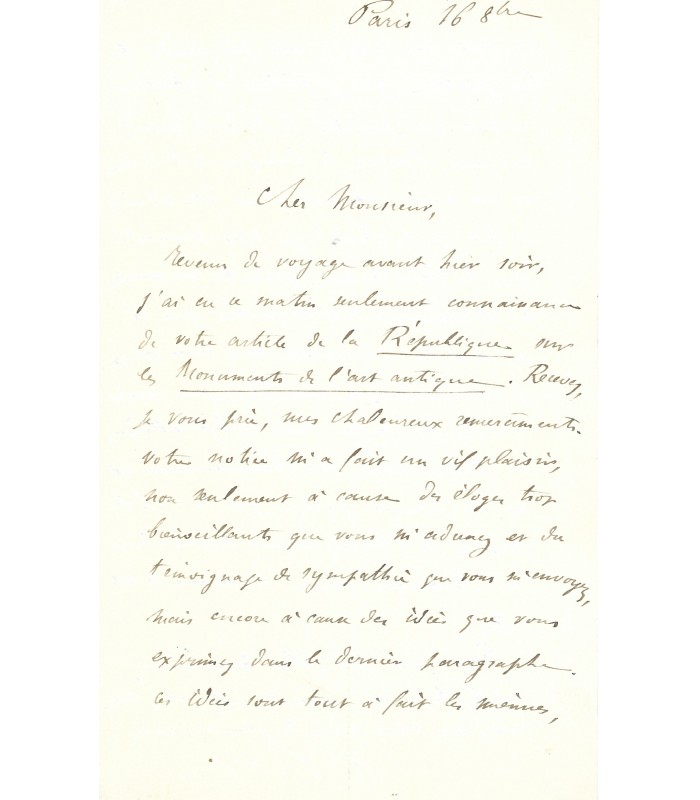 Paris 16 8bre
Cher Monsieur,
Revenu de voyage avant hier soir,
j'ai eu ce matin seulement connaissance
de votre article de la République sur
les Monuments de l'art antique. Recevez,
je vous prie, mes chaleureux remerciments.
Votre notice m'a fait un vif plaisir,
non seulement à cause des éloges trop
bienveillants que vous m'adressez et du
témoignage de sympathie que vous m'envoyez,
mais encore à cause des idées que vous
exprimez dans le dernier paragraphe.
Ces idées sont tout à fait les miennes,